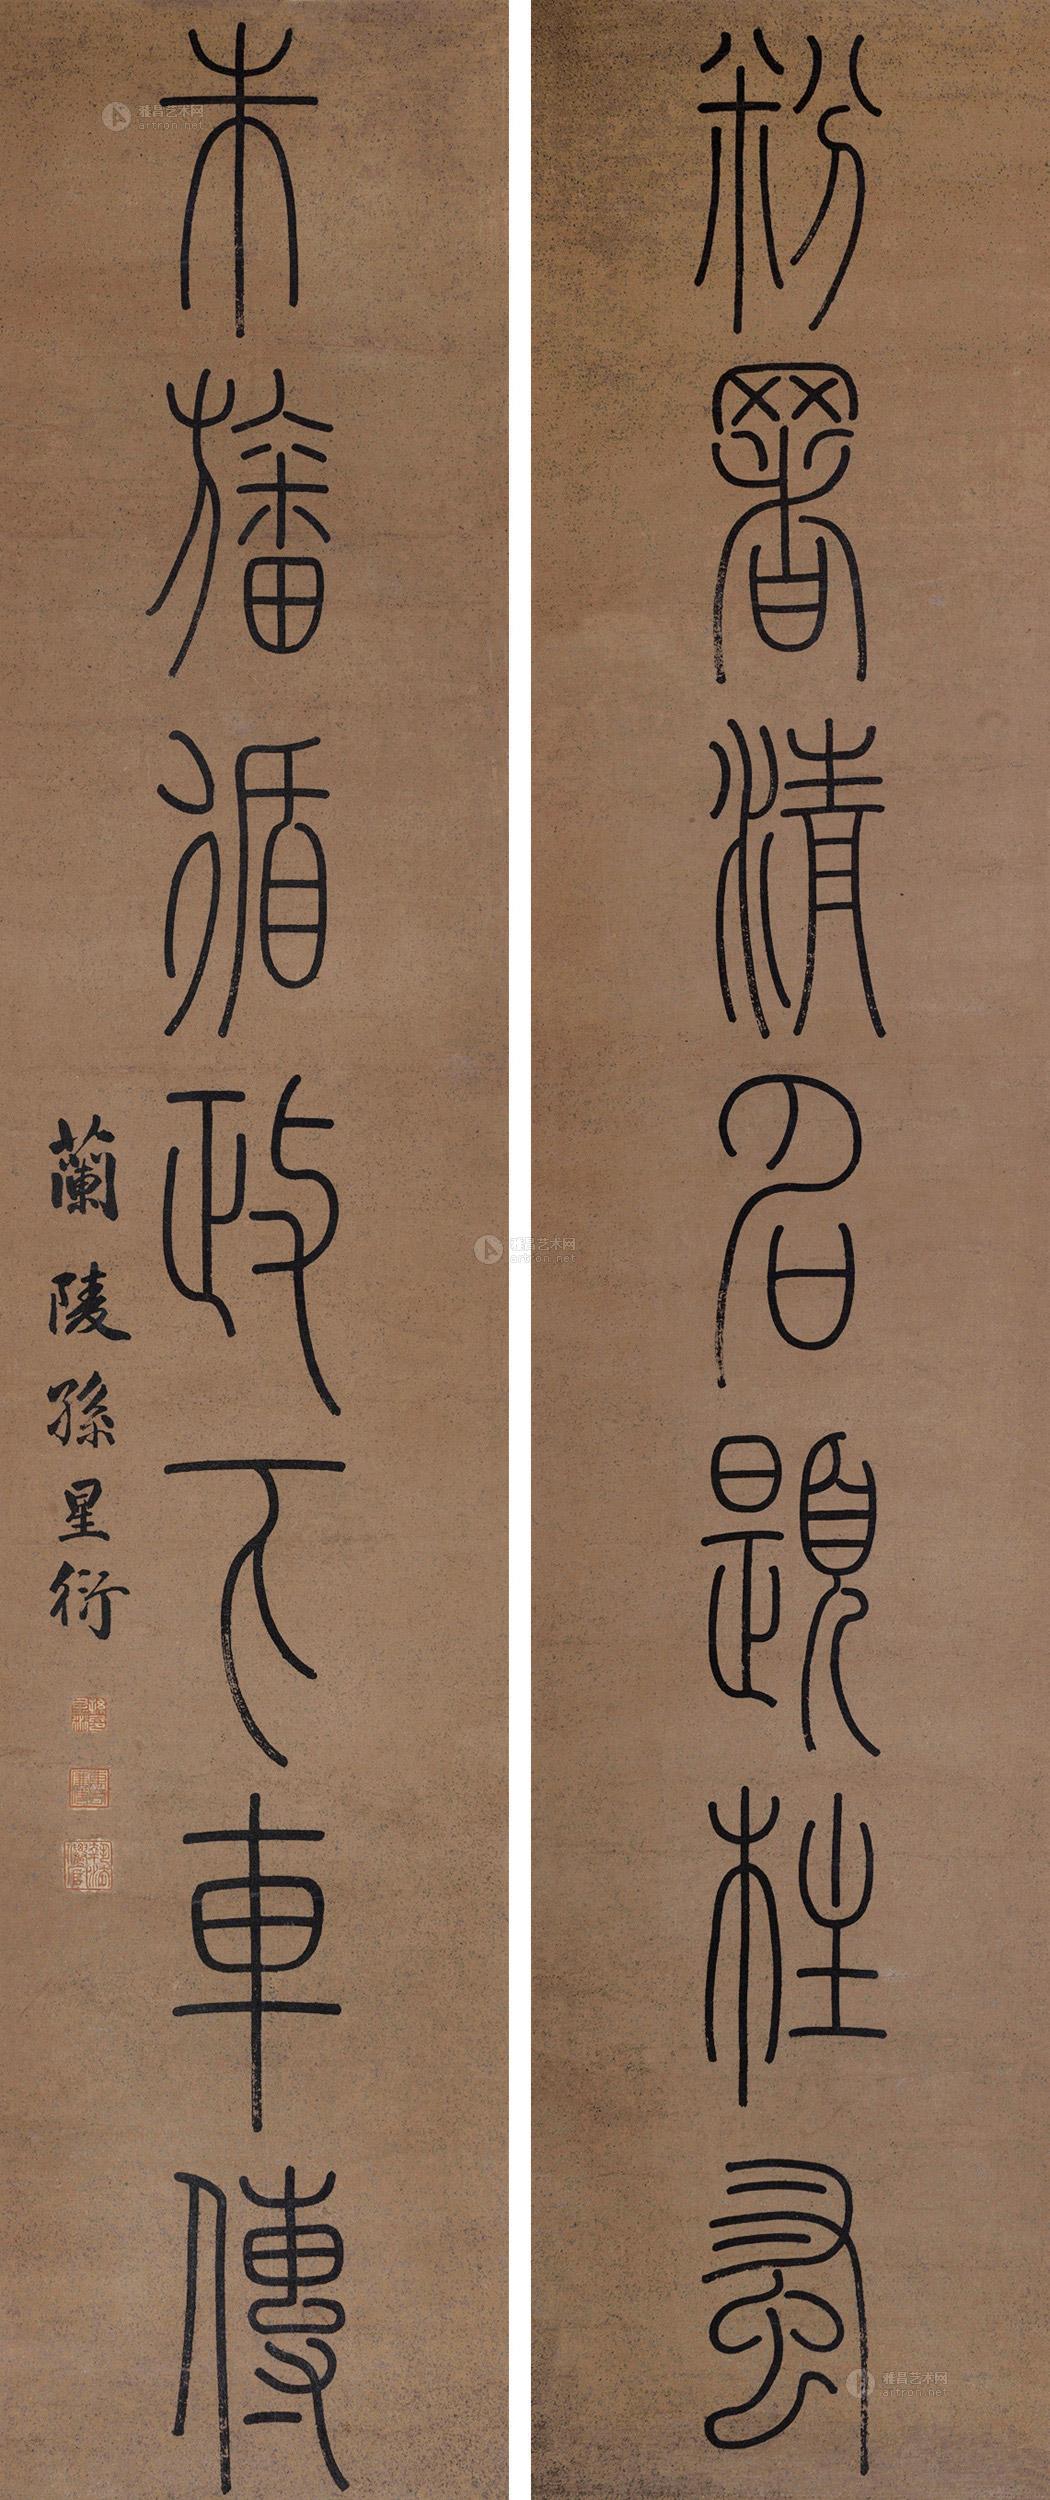 粉署清名題柱蚤
朱轓循政下車傳
蘭陵孫星衍
雅昌艺术网
artron.net
雅昌艺术网
artron.net
雅昌艺术网
artron.net